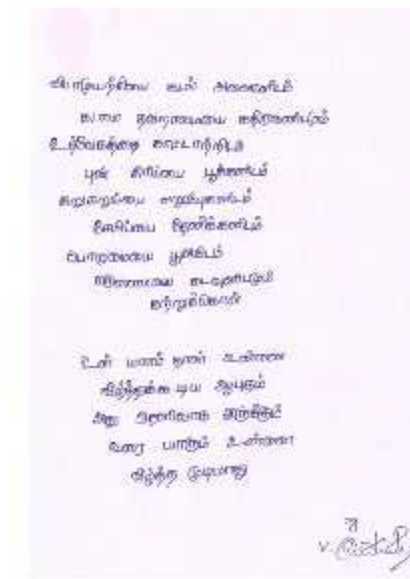 விடாமுயற்சியை கடல் அலைகளிடம்
கடமை தவறாமையை கதிரவனிடமும்
உத்வேகத்தை காட்டாற்றிடம்
புன் சிரிப்பை பூக்களிடம்
சுறுசுறுப்பை எறும்புகளிடம்
சேமிப்பை தேனீக்களிடம்
பொறுமையை பூமியிடம்
கடவுளிடமும்
கற்றுக்கொள்
உன் மனம் தான் உன்னை
வீழ்த்தக்கூடிய ஆயுதம்
அது தெளிவாக இருக்கும்
வரை யாரும் உன்னை
வீழ்த்த முடியாது
V.